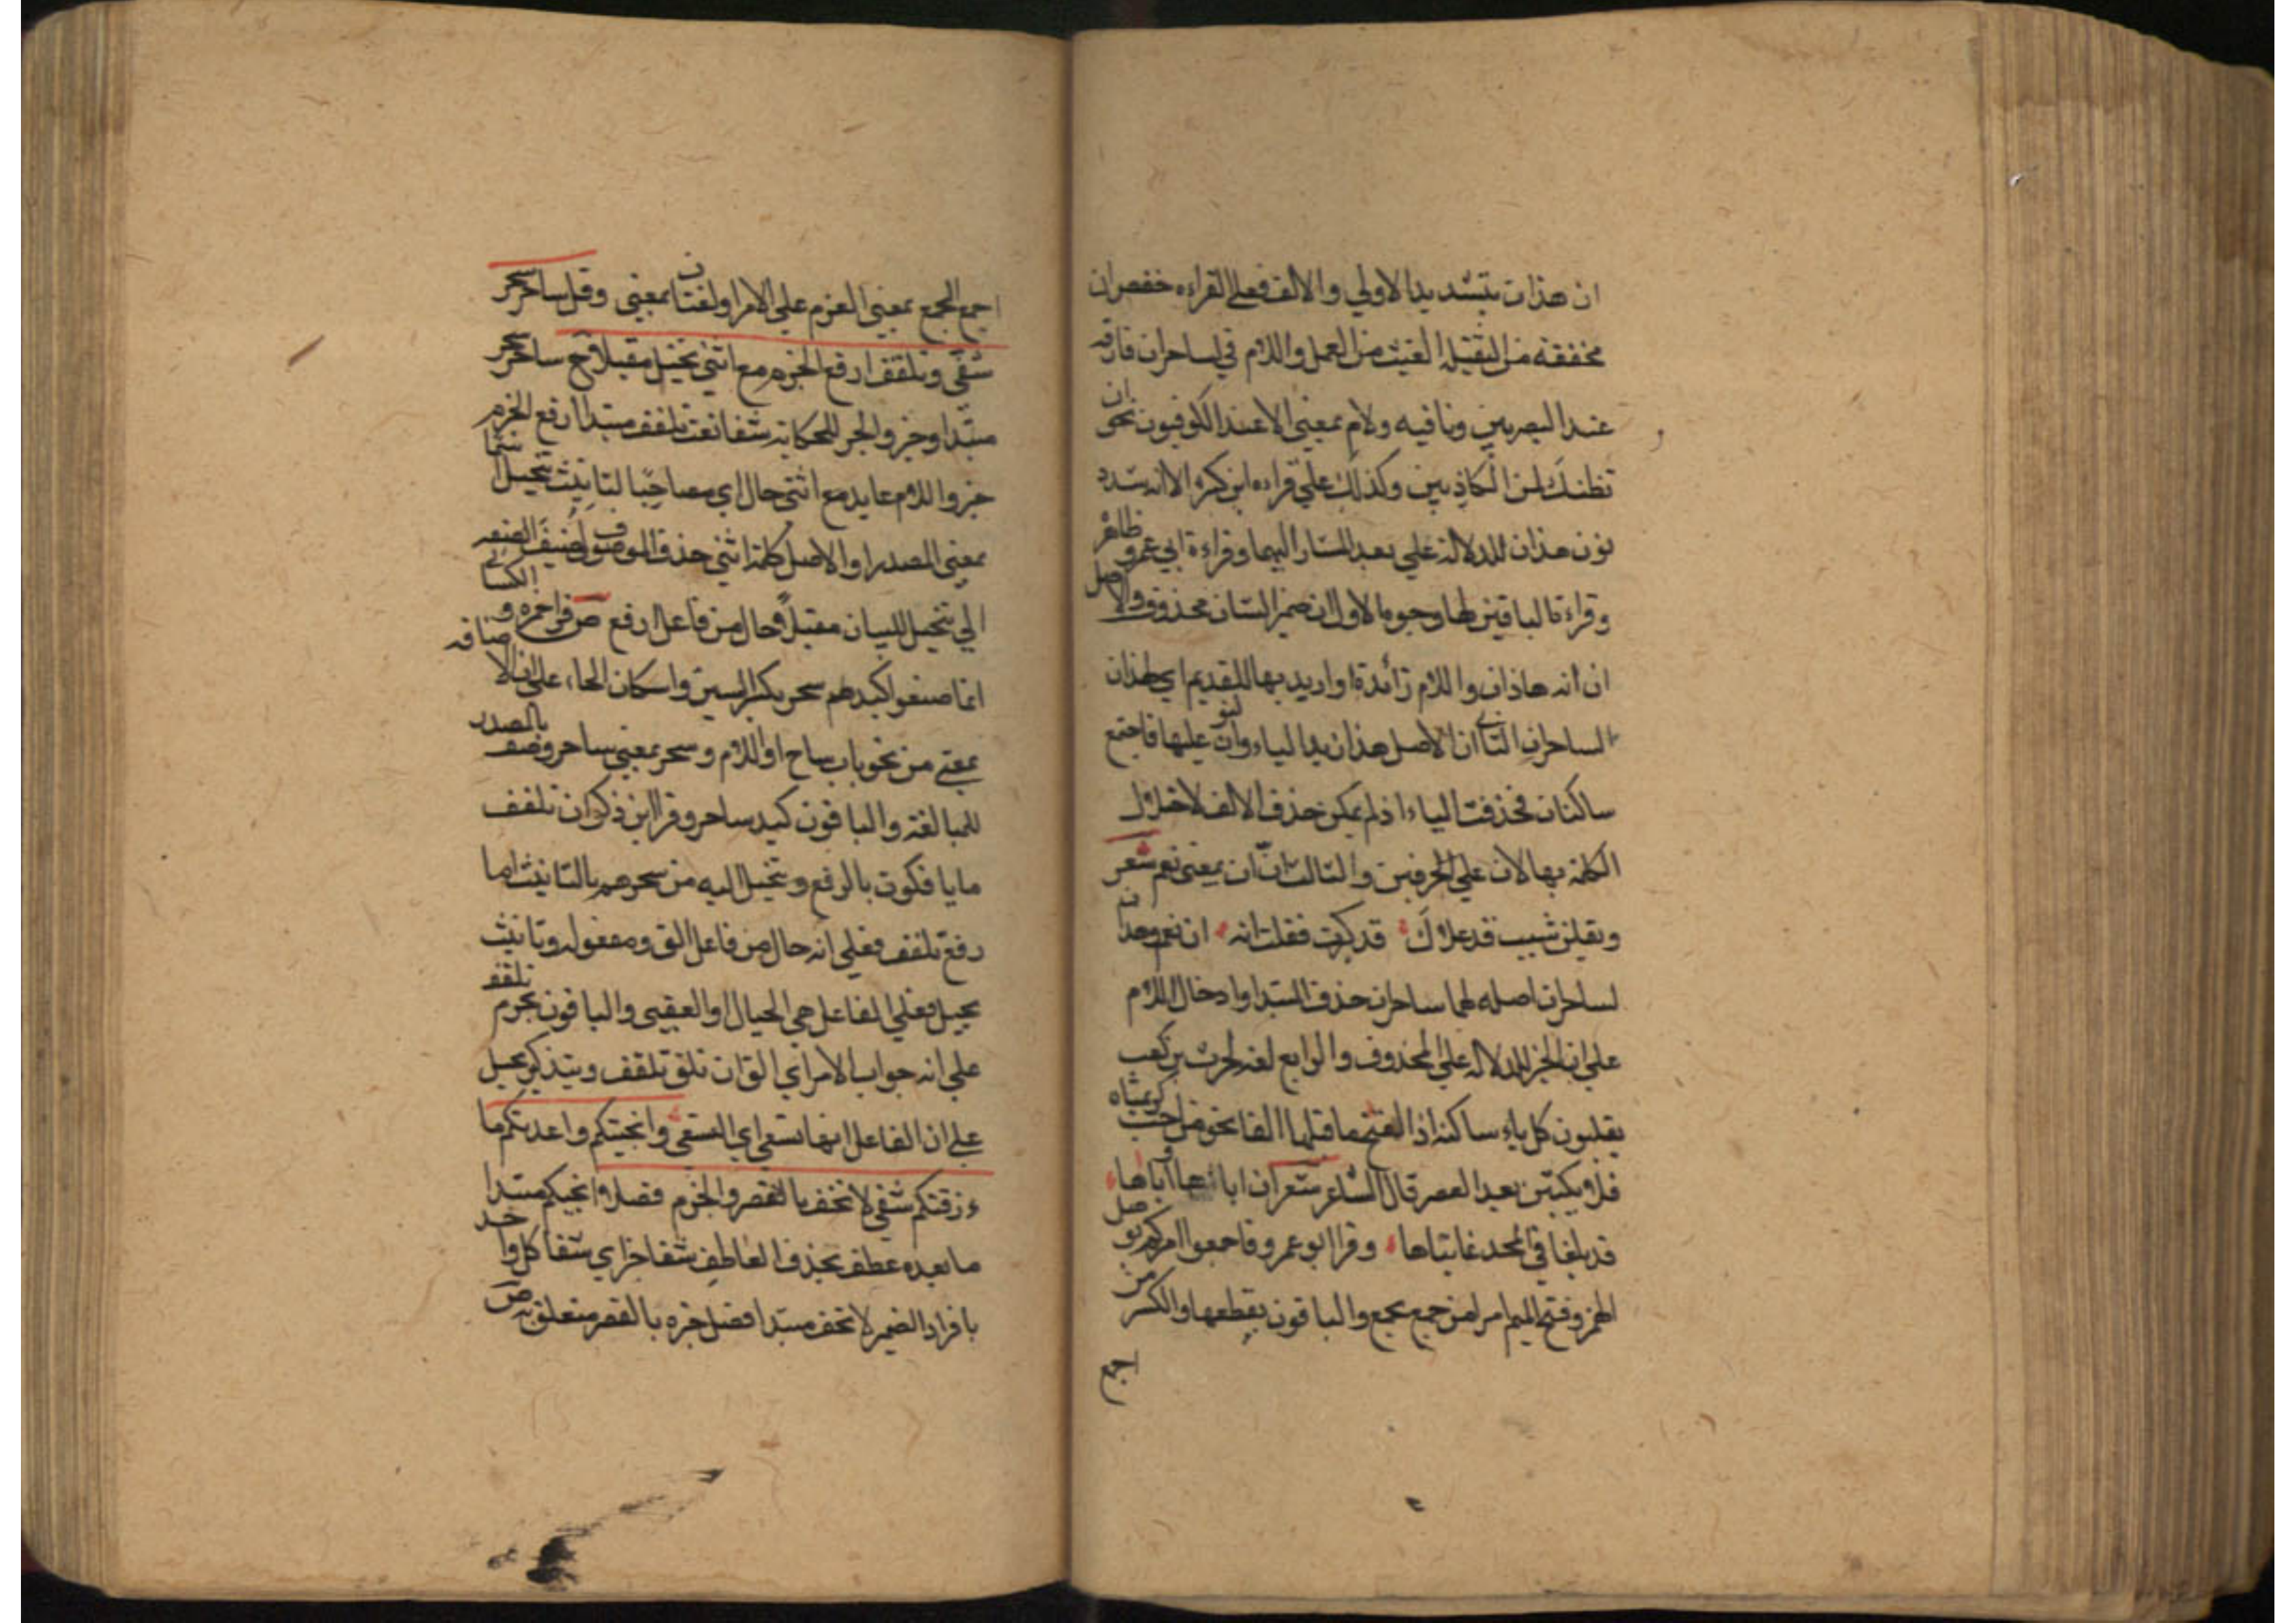 ان هذان بتشديد الاولي والالف فعلي القراءه حفص ان
مخففة من الثقيلة الغيت من العمل واللام في لساحران فارقه
عند البصريين ونافيه ولام بمعني الا عند الكوفيون نحو ان
نظنك لمن الكاذبين وكذلك علي قراءه ابن كثير الا انه شدد
نون هذان للدلالة علي بعد المشار اليهما وقراءة ابي عمرو ظاهر
وقراءة الباقين لها وجوه الاول ان ضمير الشان محذوف والاصل
ان انه هاذان واللام زائدة او اريد بها التقديم اي لهذان
الساحران الثاني ان الاصل هذان بدا لياء وان عليها فاجتمع
ساكنان فحذفت الياء اذ لم يمكن حذف الالف لاختلال
الكلمة بها لان علي الحرفين والثالث ان ان بمعني نعم شعر
ويقلن شيب قد علاك قد كبرت فقلت انه ان نعم وهذان
لساحران اصله لهما ساحران حذف المبتدا وادخال اللام
علي ان الخبر للدلاله علي المحذوف والرابع لغة لحرث بن كعب
يقلبون كل ياء ساكنه اذا انفتح ما قبلها الفا نحو من احب كريمتاه
فلا يكتبن بعد العصر قال الشاعر شعر ان اباها وابا اباها
قد بلغا في المجد غايتاها وقرا ابو عمرو فاجمعوا امركم بوصل
الهمز وفتح الميم امرا من جمع يجمع والباقون بقطعها والكسر من
اجمع
اجمع الجمع بمعني العزم علي الامر او لغتان بمعني وقل ساحر سحر
شفى وتلقف ارفع الجزم مع انثى يخيل مقبلا ح ساحر سحر
مبتدا وخبر والجر للحكاية شفا نعت تلقف مبتدا ارفع الجزم
خبر واللام عايد مع انثى حال اي مصاحبا لتانيث تخيل
بمعني المصدر او الاصل كلمة انثى حذف الموصوف اضيف الصفه
الي تخيل للبيان مقبلا حال من فاعل ارفع ص قرا حمزه والكسائي
انما صنعوا كيد هم سحر بكسر السين واسكان الحاء علي ان الاضافه
بمعني من نحو باب ساج او اللام وسحر بمعني ساحر وصف بالمصدر
للمبالغة والباقون كيد ساحر وقرا ابن ذكوان تلقف
ما يافكون بالرفع وتخيل اليه من سحرهم بالتانيث اما
رفع تلقف فعلي انه حال من فاعل الق ومفعوله وتانيث
تخيل فعلي الفاعل هي الحبال او العصي والباقون بجزم تلقف
علي انه جواب الامر اي الق ان تلق تلقف وبتذكير يخيل
علي ان الفاعل انها تسعي اي السعي وانجيتكم واعدتكم ما
رزقتكم شفي لا تخف بالقصر والجزم فصلا وانجيكم مبتدا
ما بعده عطف بحذف العاطف شفا خبر اي شفا كل واحد
بافراد الضمير لا تخف مبتدا فصل خبره بالقصر متعلق به ص